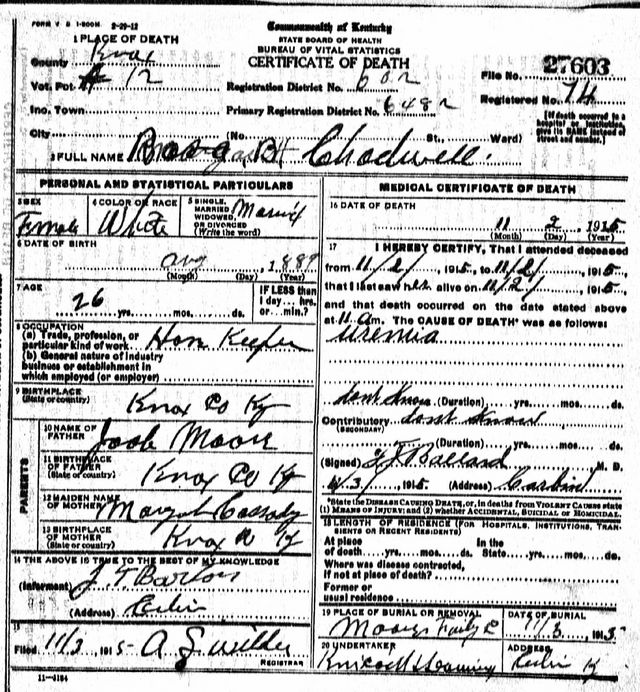 FORM V S 1-500M 2-29-12
Commonwealth of Kentucky
STATE BOARD OF HEALTH
BUREAU OF VITAL STATISTICS
CERTIFICATE OF DEATH
1 PLACE OF DEATH
County Knox
Vot. Pct # 12
Inc. Town
City
Registration District No. 602
Primary Registration District No. 6482
(No. St., Ward)
File No. 27603
Registered No. 74
[If death occurred in a hospital or institution, give its NAME instead of street and number.]
2 FULL NAME Chadwell
PERSONAL AND STATISTICAL PARTICULARS
3 SEX
Female
4 COLOR OR RACE
White
5 SINGLE, MARRIED, WIDOWED, OR DIVORCED (Write the word)
Married
6 DATE OF BIRTH
Aug 1889
(Month) (Day) (Year)
7 AGE
26 yrs. mos. ds.
IF LESS than 1 day... hrs. or... min.?
8 OCCUPATION
(a) Trade, profession, or particular kind of work House Keeper
(b) General nature of industry business or establishment in which employed (or employer)
9 BIRTHPLACE
(State or country) Knox Co Ky
PARENTS
10 NAME OF FATHER Moore
11 BIRTHPLACE OF FATHER
(State or country) Knox Co Ky
12 MAIDEN NAME OF MOTHER
13 BIRTHPLACE OF MOTHER
(State or country) Knox Co Ky
14 THE ABOVE IS TRUE TO THE BEST OF MY KNOWLEDGE
(Informant) J. T. Barton
(Address)
15
Filed 11/3 1915 A. G. Wilder
REGISTRAR
11-3184
MEDICAL CERTIFICATE OF DEATH
16 DATE OF DEATH
11 2, 1915
(Month) (Day) (Year)
17 I HEREBY CERTIFY, That I attended deceased
from 11/2/, 1915, to 11/2/, 1915,
that I last saw her alive on 11/2/, 1915,
and that death occurred on the date stated above
at 11 am. The CAUSE OF DEATH* was as follows:
uremia
dont know (Duration) yrs. mos. ds.
Contributory dont know
(SECONDARY)
(Duration) yrs. mos. ds.
(Signed) Ballard M. D.
11/3/ 1915 (Address) Corbin
*State the DISEASE CAUSING DEATH, or, in deaths from VIOLENT CAUSES state (1) MEANS OF INJURY; and (2) whether ACCIDENTAL, SUICIDAL or HOMICIDAL.
18 LENGTH OF RESIDENCE (FOR HOSPITALS, INSTITUTIONS, TRANSIENTS OR RECENT RESIDENTS)
At place of death yrs. mos. ds. In the State yrs. mos. ds.
Where was disease contracted,
if not at place of death?
Former or usual residence
19 PLACE OF BURIAL OR REMOVAL
DATE OF BURIAL
11/3, 1915
20 UNDERTAKER
ADDRESS